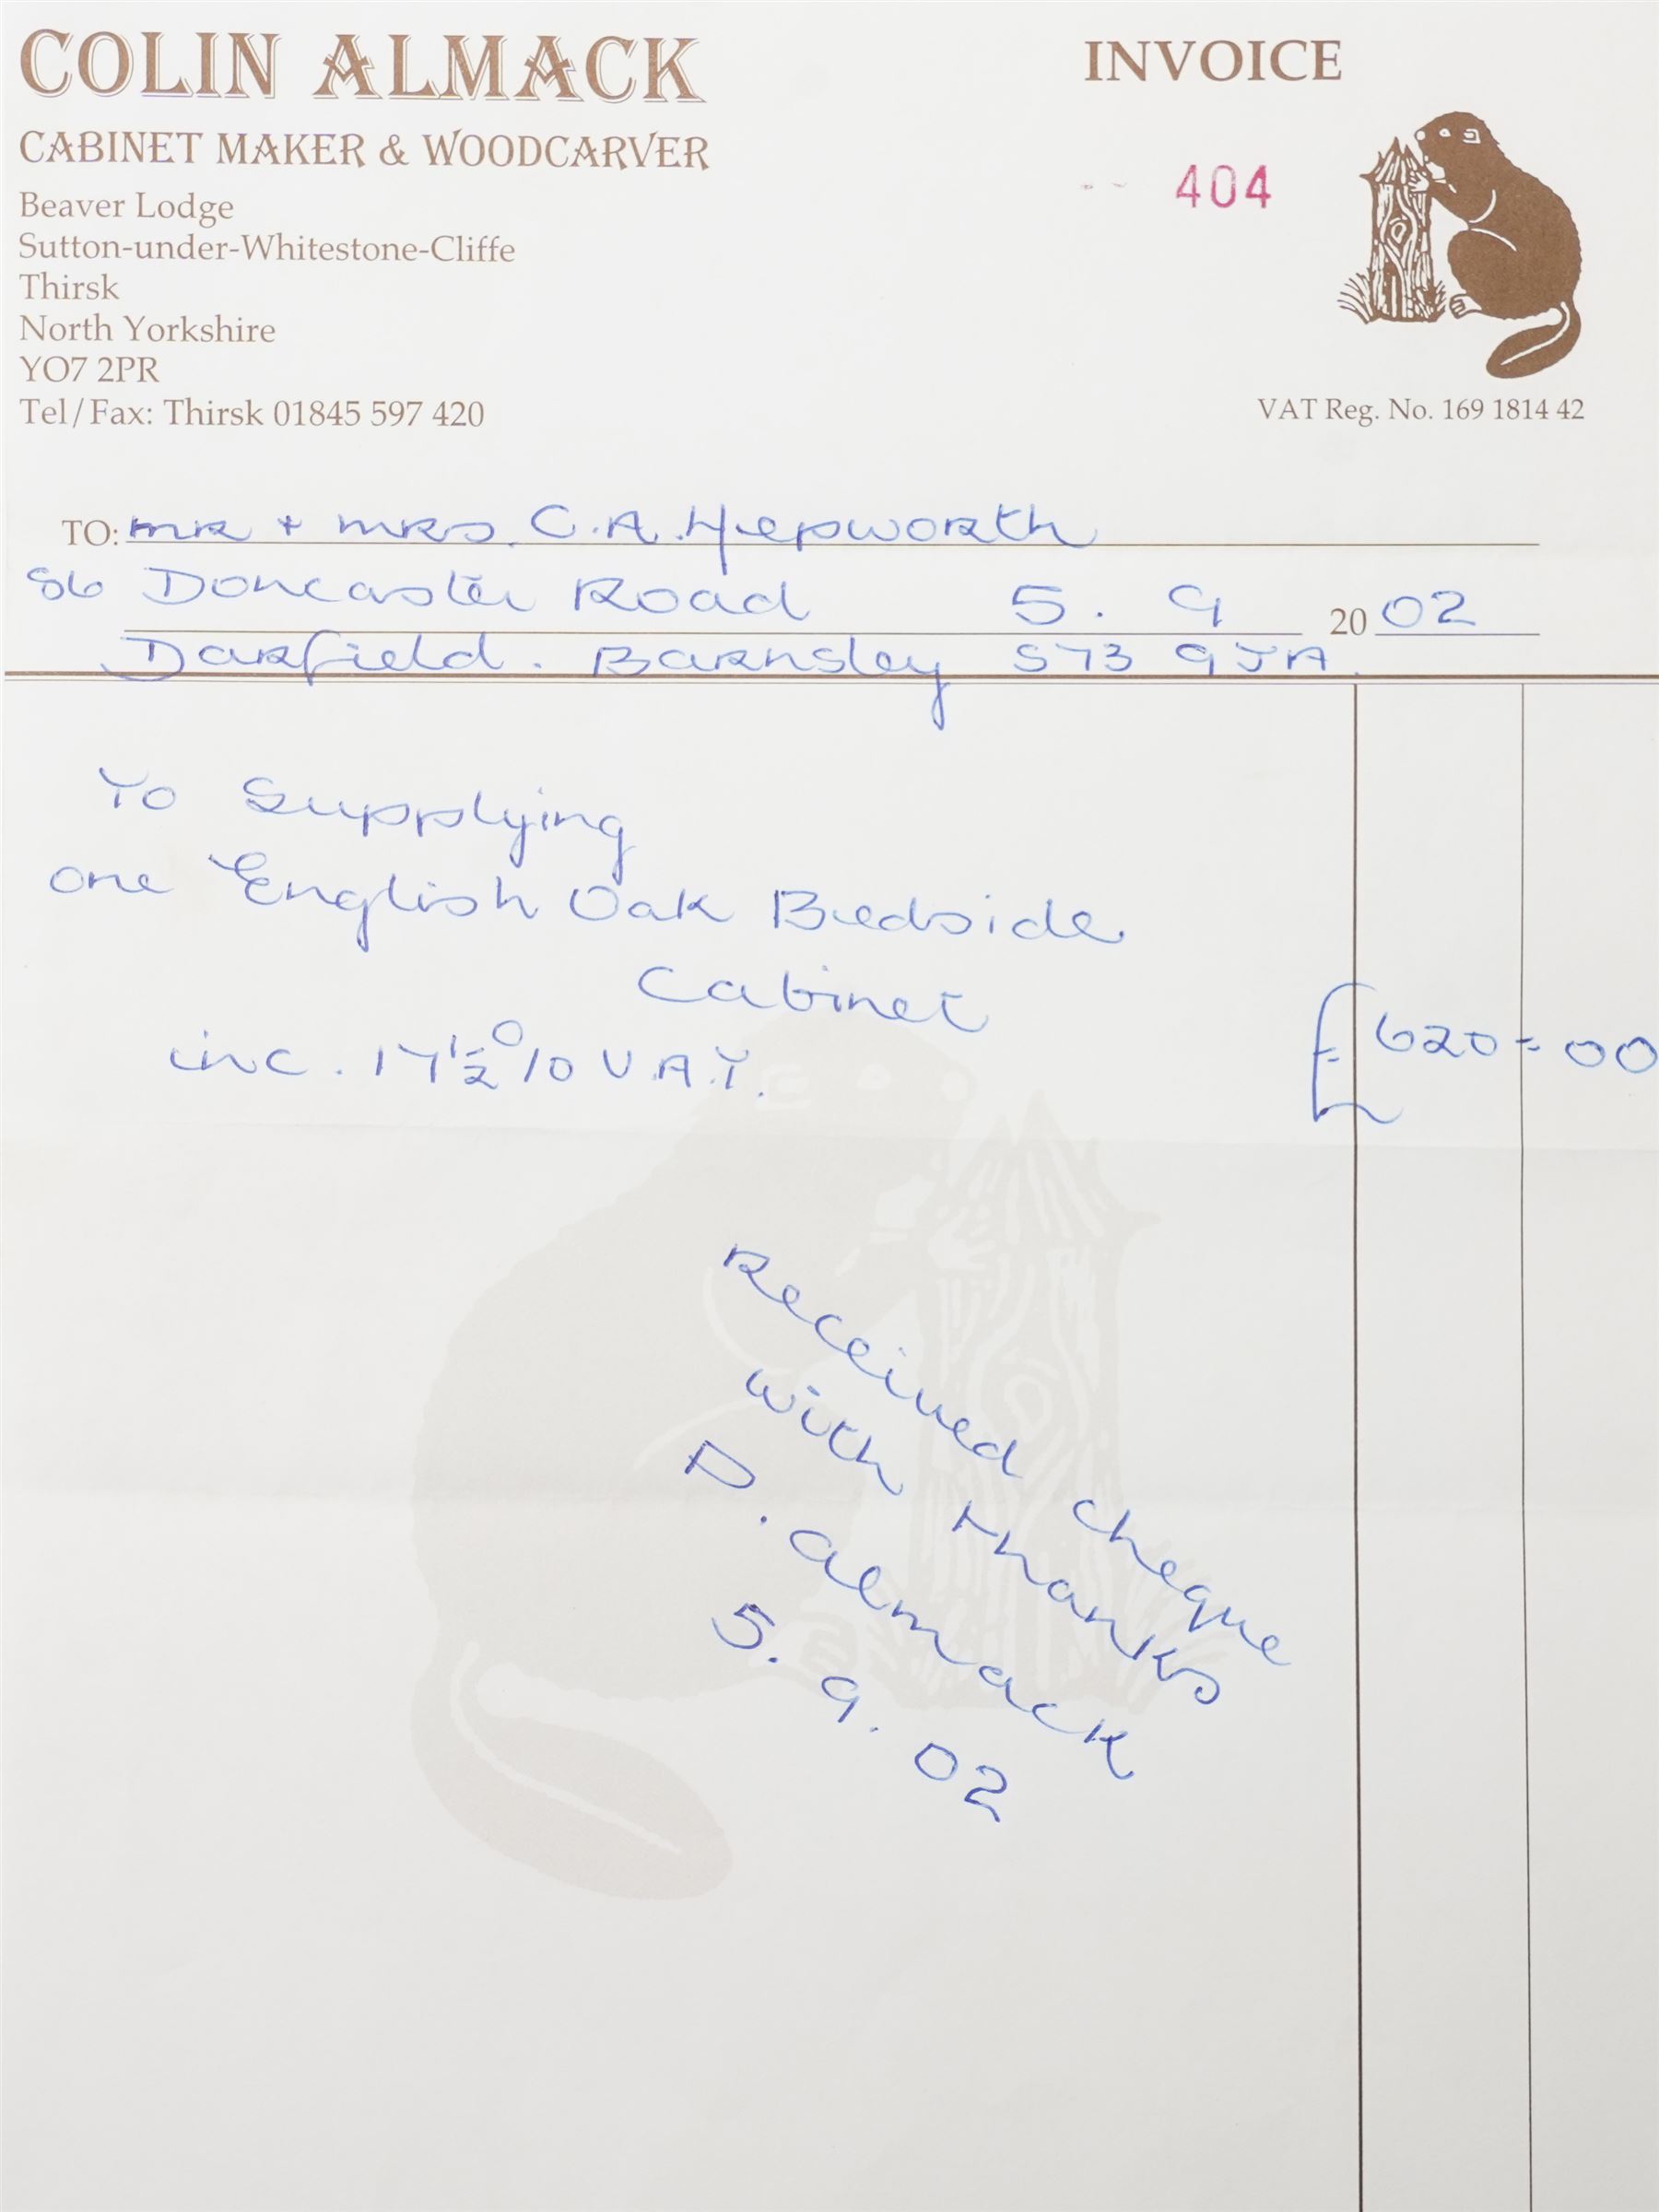 COLIN ALMACK
CABINET MAKER & WOODCARVER
Beaver Lodge
Sutton-under-Whitestone-Cliffe
Thirsk
North Yorkshire
YO7 2PR
Tel/Fax: Thirsk 01845 597 420
INVOICE
404
VAT Reg. No. 169 1814 42
TO: MR + MRS. C.A. Hepworth
86 Doncaster Road 5. 9 2002
Darfield. Barnsley S73 9JA.
To Supplying
one English Oak Bedside
Cabinet
inc. 17½% V.A.T.
£620=00
Received cheque
with thanks
D. Almack
5. 9. 02